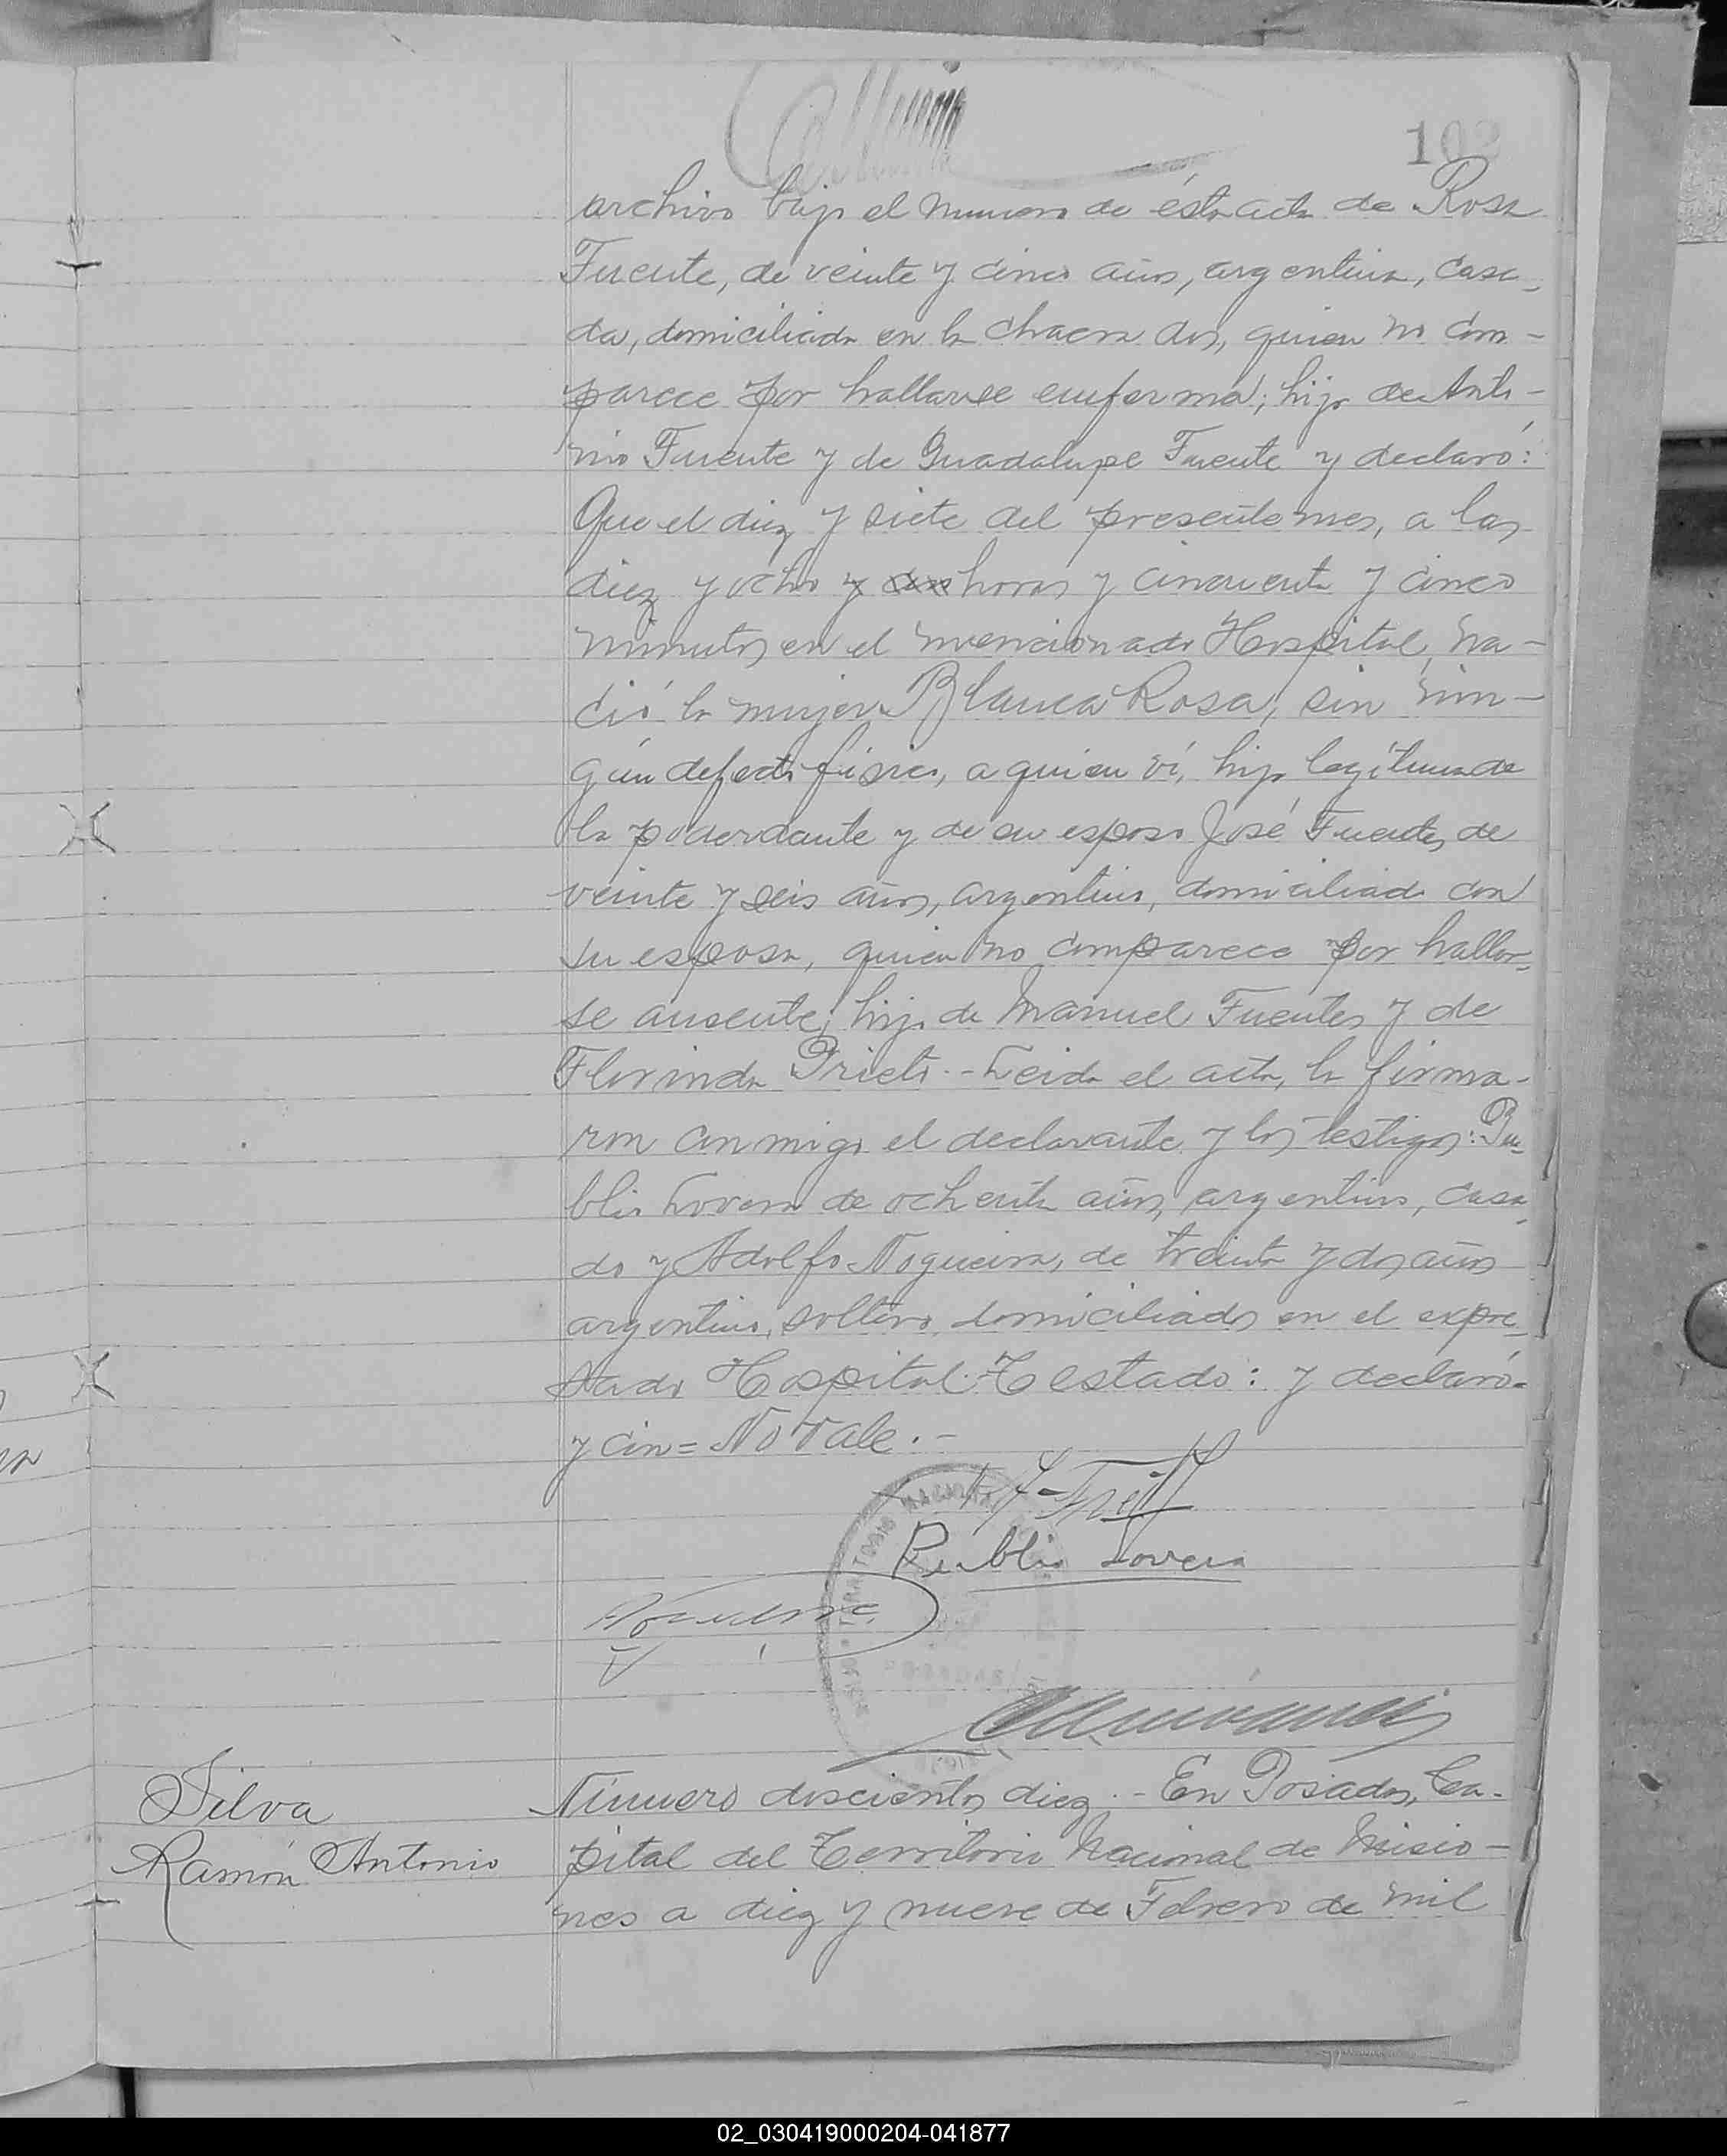 102
archivo bajo el número de ésta acta de Rosa
Fuente, de veinte y cinco años, argentina, casa-
da, domiciliada en la chacra dos, quien no com-
parece por hallarse enferma; hija de Anto-
nio Fuente y de Guadalupe Fuente y declaró:
Que el diez y siete del presente mes, a las
diez y ocho y horas y cincuenta y cinco
minutos en el mencionado Hospital, na-
ció la mujer Blanca Rosa, sin nin-
gún defecto físico, a quien ví, hija legítima de
la poderdante y de su esposo José Fuentes, de
veinte y seis años, argentino, domiciliado con
su esposa, quien no comparece por hallar-
se ausente; hijo de Manuel Fuentes y de
Florinda Prieto.- Leida el acta, la firma-
ron conmigo el declarante y los testigos: Pu-
blio Lovera de ochenta años, argentino, casa-
do y Adolfo Nogueira, de treinta y dos años
argentino, soltero, domiciliados en el expre-
sado Hospital. Testado: y declaró=
y cin= No Vale.-
Publio Lovera
Silva
Ramón Antonio
Número doscientos diez.- En Posadas, Ca-
pital del Territorio Nacional de Misio-
nes a diez y nueve de Febrero de mil
02_030419000204-041877